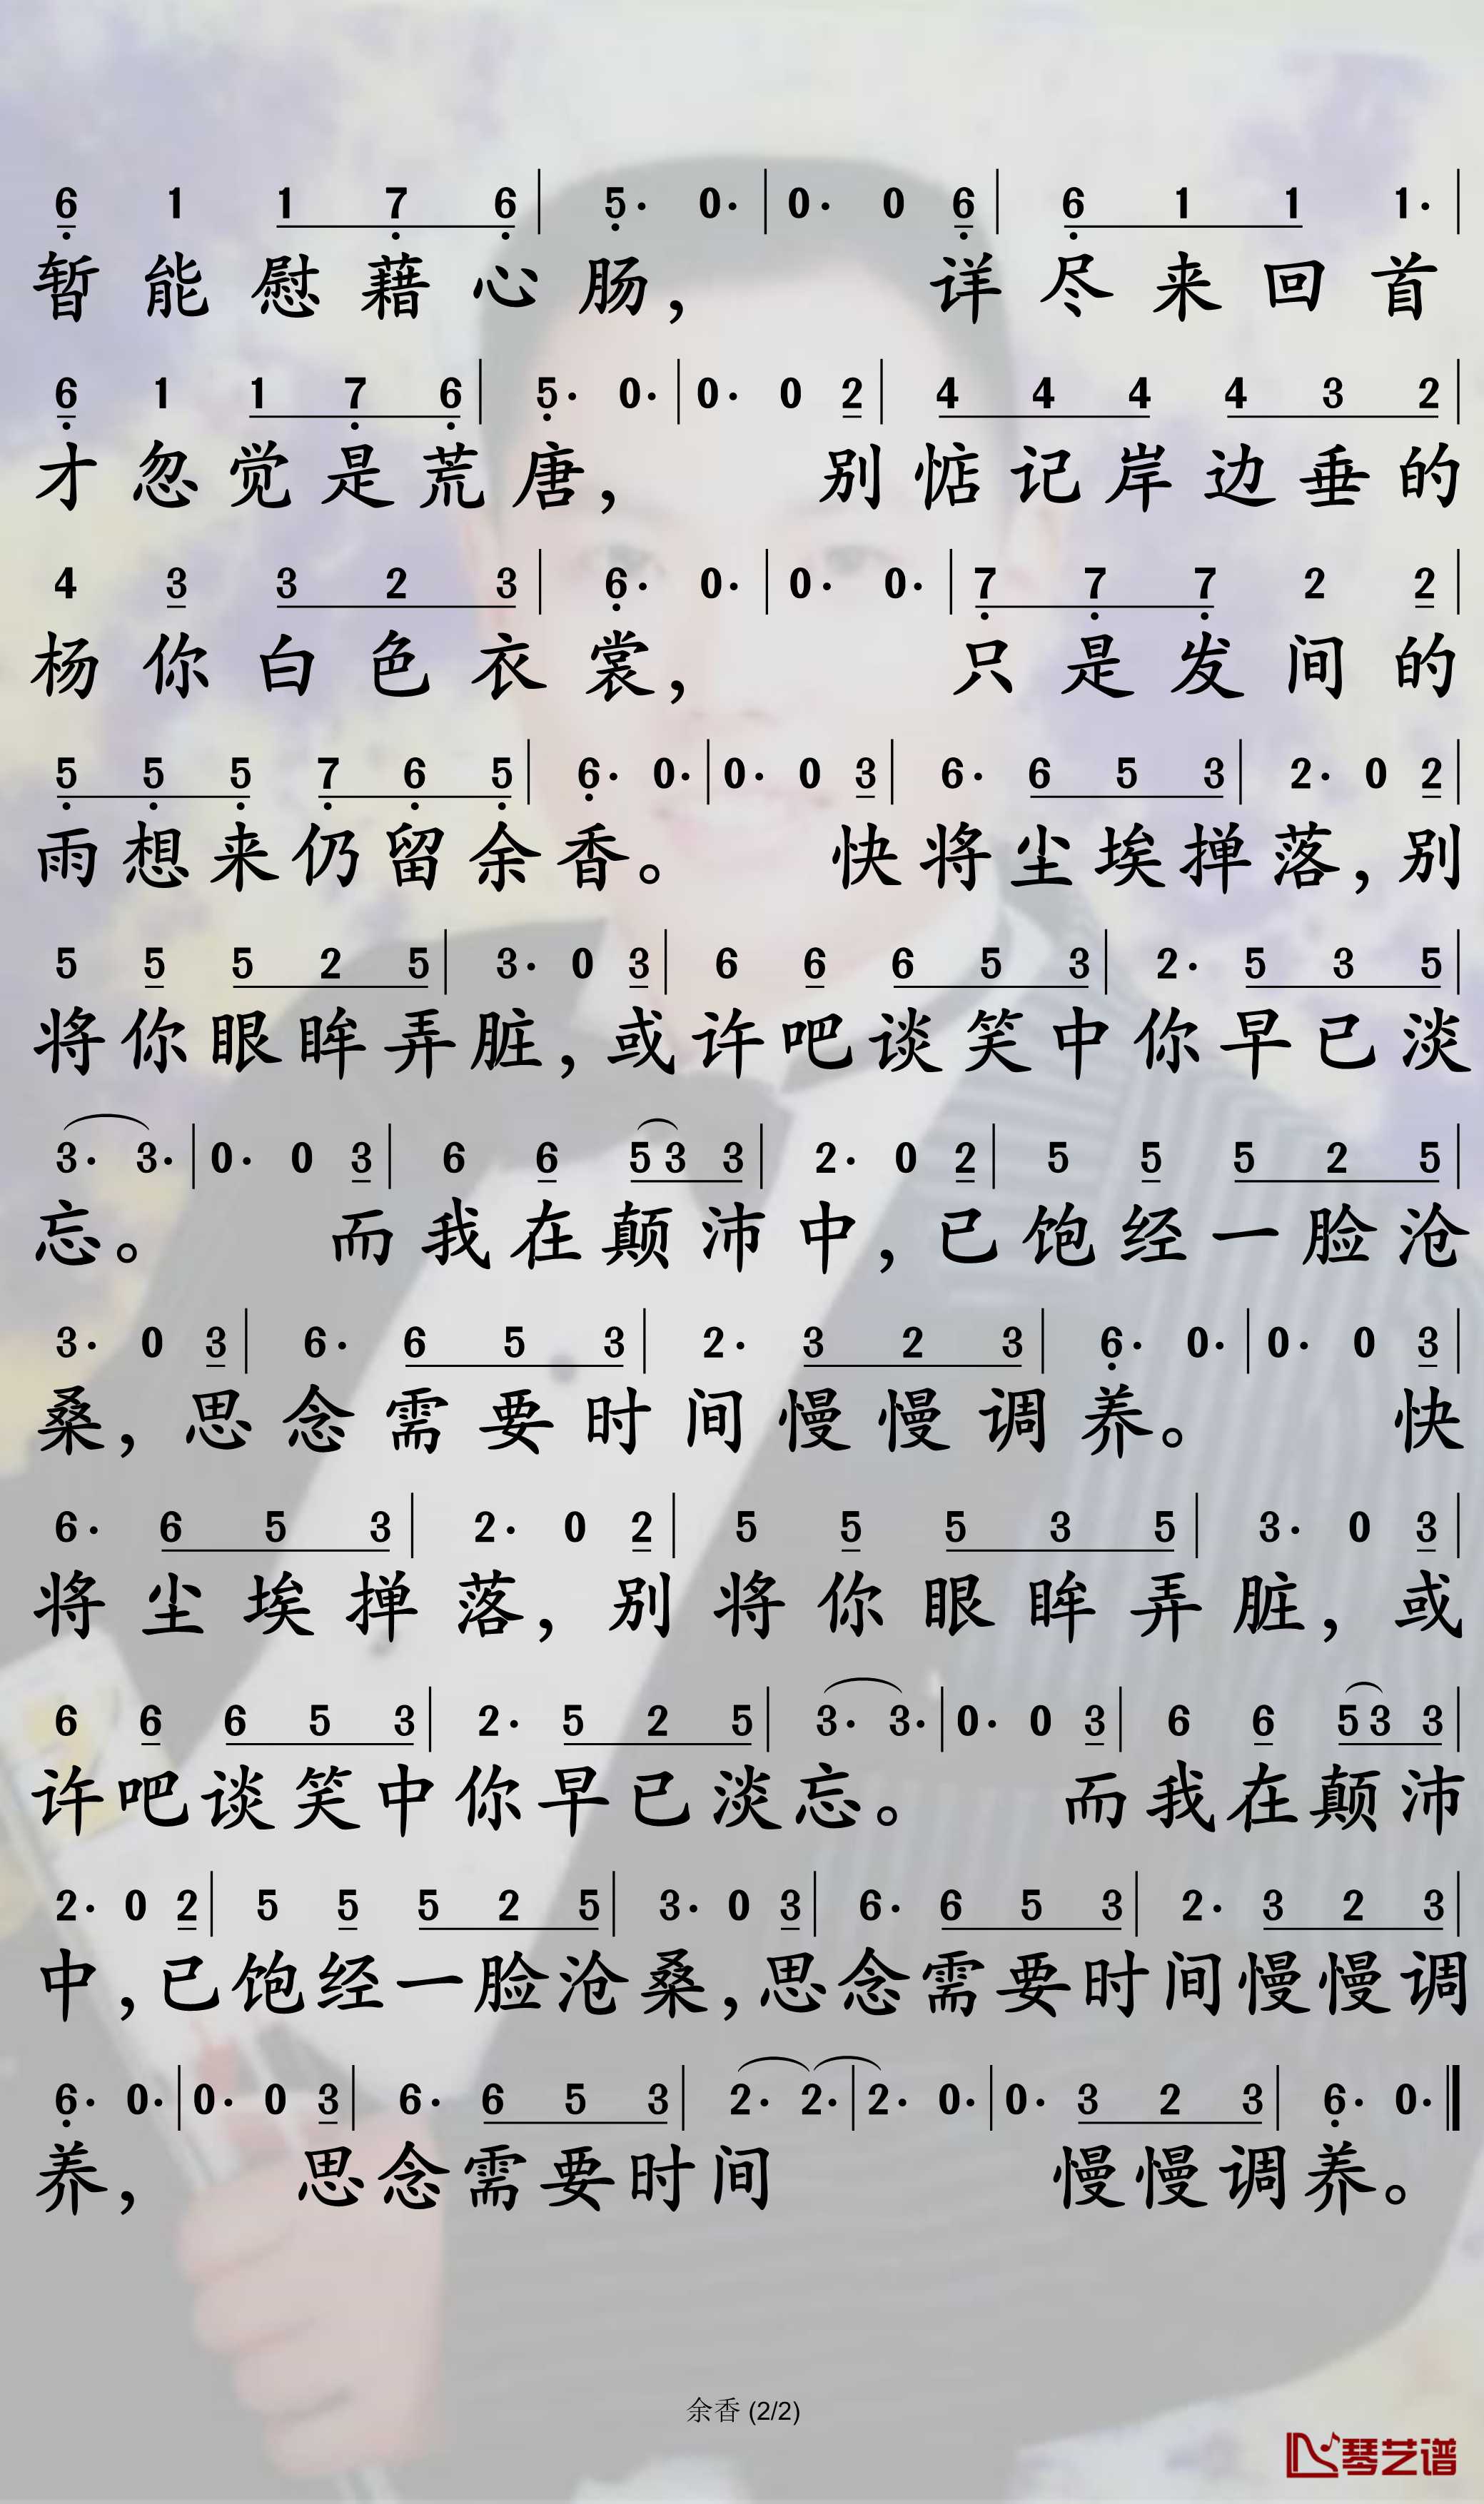 6 1 1 7 6 | 5· 0· | 0· 0 6 | 6 1 1 1· |
暂能慰藉心肠， 详尽来回首
6 1 1 7 6 | 5· 0· | 0· 0 2 | 4 4 4 4 3 2 |
才忽觉是荒唐， 别惦记岸边垂的
4 3 3 2 3 | 6· 0· | 0· 0· | 7 7 7 2 2 |
杨你白色衣裳， 只是发间的
5 5 5 7 6 5 | 6· 0· | 0· 0 3 | 6· 6 5 3 | 2· 0 2 |
雨想来仍留余香。 快将尘埃掸落，别
5 5 5 2 5 | 3· 0 3 | 6 6 6 5 3 | 2· 5 3 5 |
将你眼眸弄脏，或许吧谈笑中你早已淡
3· 3· | 0· 0 3 | 6 6 5 3 3 | 2· 0 2 | 5 5 5 2 5 |
忘。 而我在颠沛中，已饱经一脸沧
3· 0 3 | 6· 6 5 3 | 2· 3 2 3 | 6· 0· | 0· 0 3 |
桑，思念需要时间慢慢调养。 快
6· 6 5 3 | 2· 0 2 | 5 5 5 3 5 | 3· 0 3 |
将尘埃掸落，别将你眼眸弄脏，或
6 6 6 5 3 | 2· 5 2 5 | 3· 3· | 0· 0 3 | 6 6 5 3 3 |
许吧谈笑中你早已淡忘。 而我在颠沛
2· 0 2 | 5 5 5 2 5 | 3· 0 3 | 6· 6 5 3 | 2· 3 2 3 |
中，已饱经一脸沧桑，思念需要时间慢慢调
6· 0· | 0· 0 3 | 6· 6 5 3 | 2· 2· | 2· 0· | 0· 3 2 3 | 6· 0· ‖
养， 思念需要时间 慢慢调养。
余香 (2/2)
琴艺谱